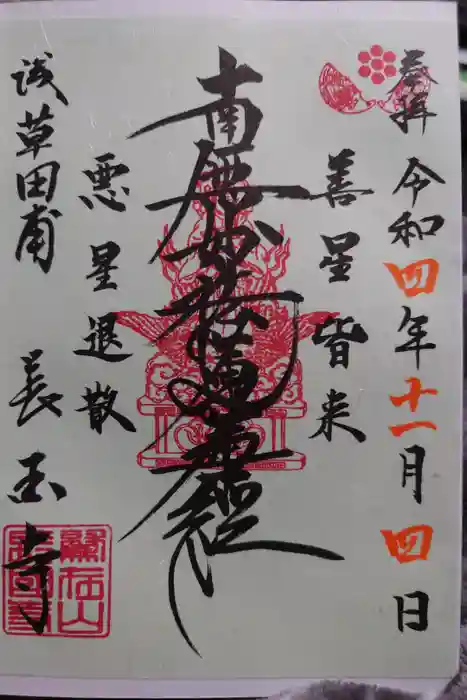 奉拝 令和四年十一月四日
善星皆来
南無妙法蓮華経
悪星退散
浅草田甫 長国寺
鷲在山
長国寺